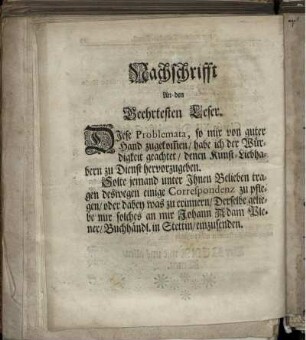 Nachschrifft
An den
Geehrtesten Leser.
DIese Problemata, so mir von guter
Hand zugekom̃en / habe ich der Wür-
digkeit geachtet / denen Kunst-Liebha-
bern zu Dienst hervorzugeben.
Solte jemand unter Ihnen Belieben tra-
gen deswegen einige Correspondenz zu pfle-
gen / oder dabey was zu erinnern / Derselbe gelie-
be nur solches an mir Johann Adam Ple-
ner / Buchhändl. in Stettin / einzusenden.